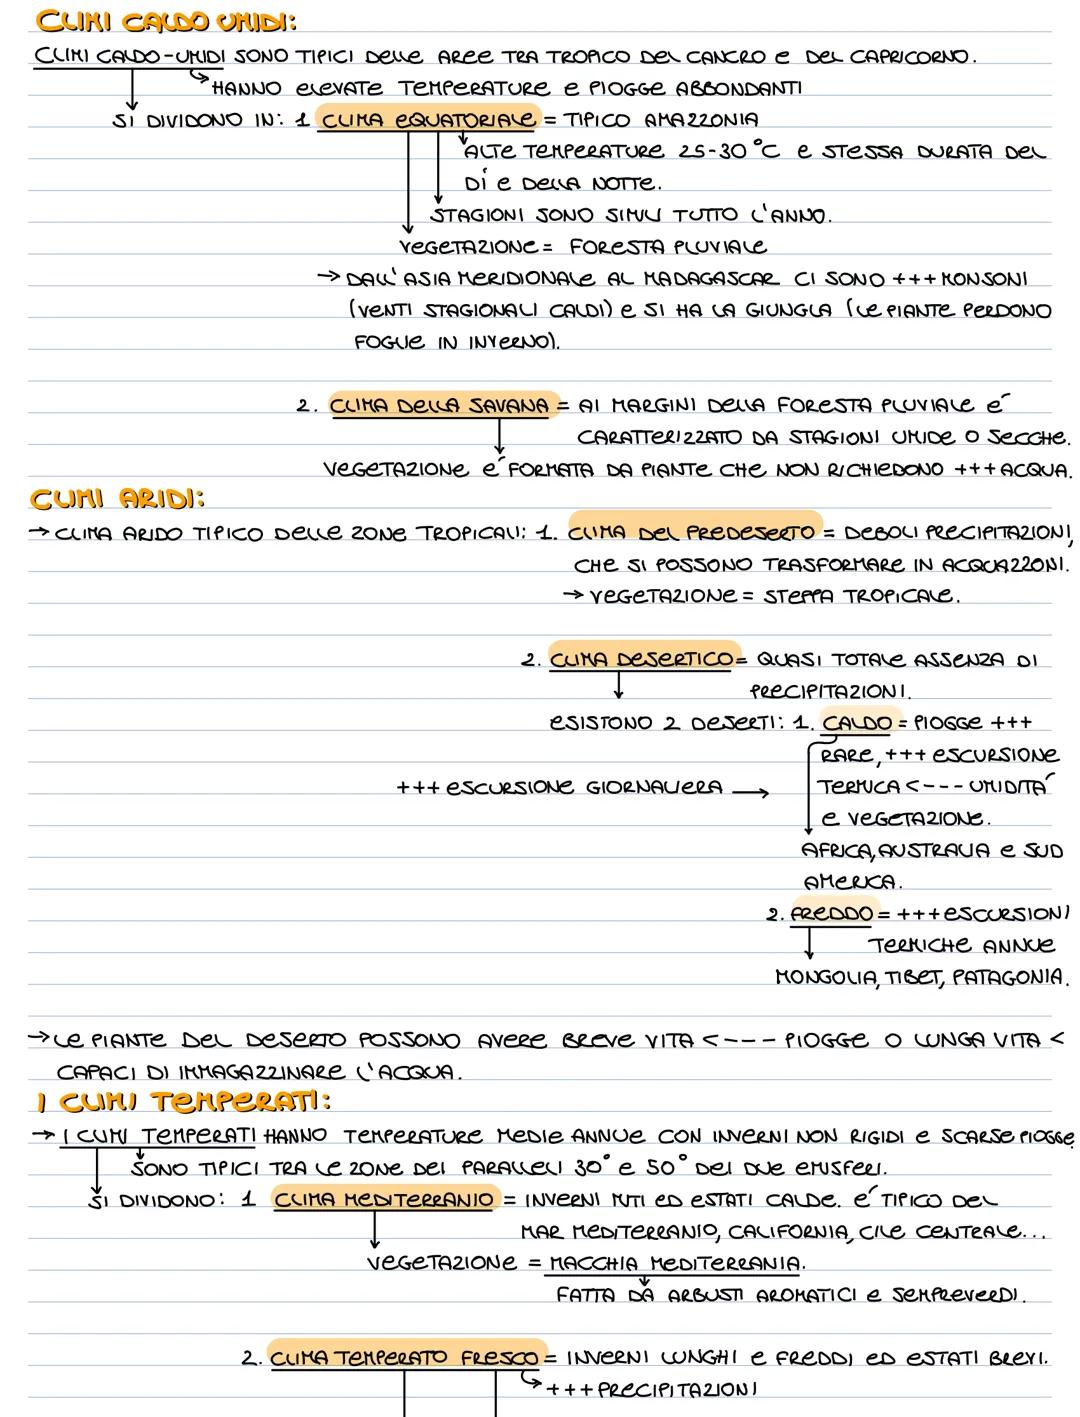 CLIMI CALDO UMIDI:
CLIMI CALDO-UMIDI SONO TIPICI DELLE AREE TRA TROPICO DEL CANCRO E DEL CAPRICORNO.
HANNO ELEVATE TEMPERATURE E PIOGGE ABBONDANTI
SI DIVIDONO IN: 1 CLIMA EQUATORIALE = TIPICO AMAZZONIA
ALTE TEMPERATURE 25-30°C E STESSA DURATA DEL
DÌ E DELLA NOTTE.
STAGIONI SONO SIMILI TUTTO L'ANNO.
VEGETAZIONE = FORESTA PLUVIALE
→ DALL'ASIA MERIDIONALE AL MADAGASCAR CI SONO +++ MONSONI
(VENTI STAGIONALI CALDI) E SI HA LA GIUNGLA (LE PIANTE PERDONO
FOGLIE IN INVERNO).
2. CLIMA DELLA SAVANA = AI MARGINI DELLA FORESTA PLUVIALE E´
CARATTERIZZATO DA STAGIONI UMIDE O SECCHE.
VEGETAZIONE E´ FORMATA DA PIANTE CHE NON RICHIEDONO +++ ACQUA.
CLIMI ARIDI:
→ CLIMA ARIDO TIPICO DELLE ZONE TROPICALI: 1. CLIMA DEL PREDESERTO = DEBOLI PRECIPITAZIONI,
CHE SI POSSONO TRASFORMARE IN ACQUAZZONI.
→ VEGETAZIONE = STEPPA TROPICALE.
2. CLIMA DESERTICO = QUASI TOTALE ASSENZA DI
PRECIPITAZIONI.
ESISTONO 2 DESERTI: 1. CALDO = PIOGGE +++
RARE, +++ ESCURSIONE
+++ ESCURSIONE GIORNALIERA → TERMICA <--- UMIDITA´
E VEGETAZIONE.
AFRICA, AUSTRALIA E SUD
AMERICA.
2. FREDDO = +++ ESCURSIONI
TERMICHE ANNUE
MONGOLIA, TIBET, PATAGONIA.
→ LE PIANTE DEL DESERTO POSSONO AVERE BREVE VITA <--- PIOGGE O LUNGA VITA <
CAPACI DI IMMAGAZZINARE L'ACQUA.
I CLIMI TEMPERATI:
→ I CLIMI TEMPERATI HANNO TEMPERATURE MEDIE ANNUE CON INVERNI NON RIGIDI E SCARSE PIOGGE
SONO TIPICI TRA LE ZONE DEI PARALLELI 30° E 50° DEI DUE EMISFERI.
SI DIVIDONO: 1 CLIMA MEDITERRANIO = INVERNI MITI ED ESTATI CALDE. E´ TIPICO DEL
MAR MEDITERRANIO, CALIFORNIA, CILE CENTRALE...
VEGETAZIONE = MACCHIA MEDITERRANIA.
FATTA DA ARBUSTI AROMATICI E SEMPREVERDI.
2. CLIMA TEMPERATO FRESCO = INVERNI LUNGHI E FREDDI ED ESTATI BREVI.
+++ PRECIPITAZIONI